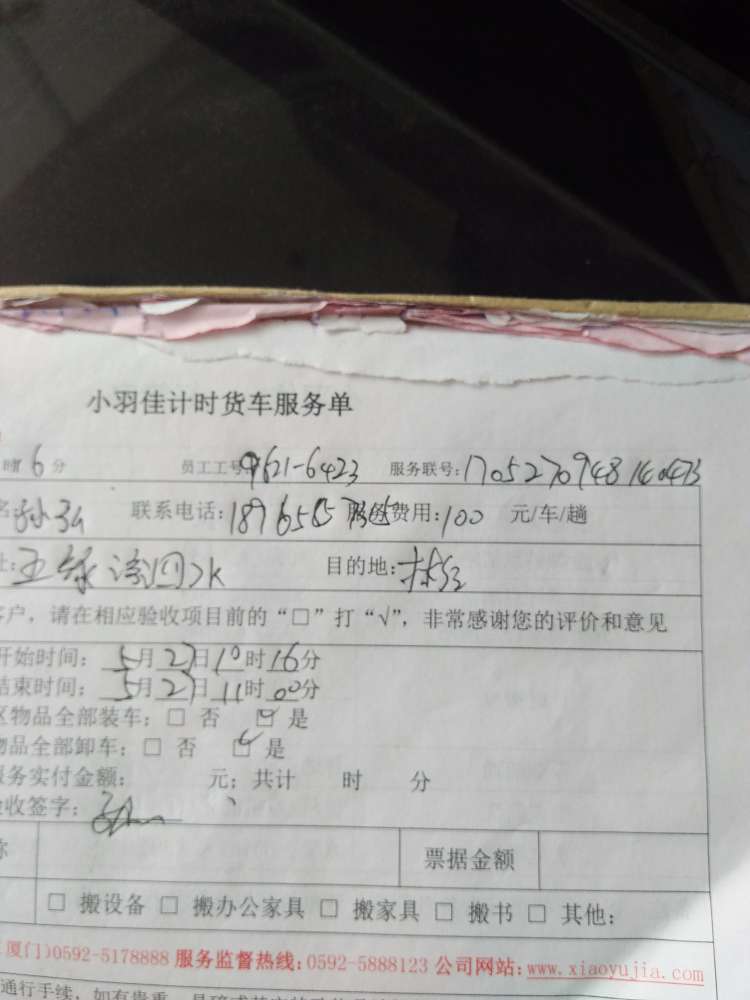 小羽佳计时货车服务单
时6分 员工工号9621-6423 服务联号:1705270948140473
名: 联系电话: 服务费用:100 元/车/趟
址: 目的地:
客户，请在相应验收项目前的“□”打“√”，非常感谢您的评价和意见
开始时间: 5月27日10时16分
结束时间: 5月27日11时00分
区物品全部装车: □ 否 ☑ 是
物品全部卸车: □ 否 ☑ 是
服务实付金额: 元; 共计 时 分
验收签字:
称 票据金额
□ 搬设备 □ 搬办公家具 □ 搬家具 □ 搬书 □ 其他:
厦门)0592-5178888 服务监督热线:0592-5888123 公司网站:www.xiaoyujia.com
通行手续,如有贵重、易碎或其它的